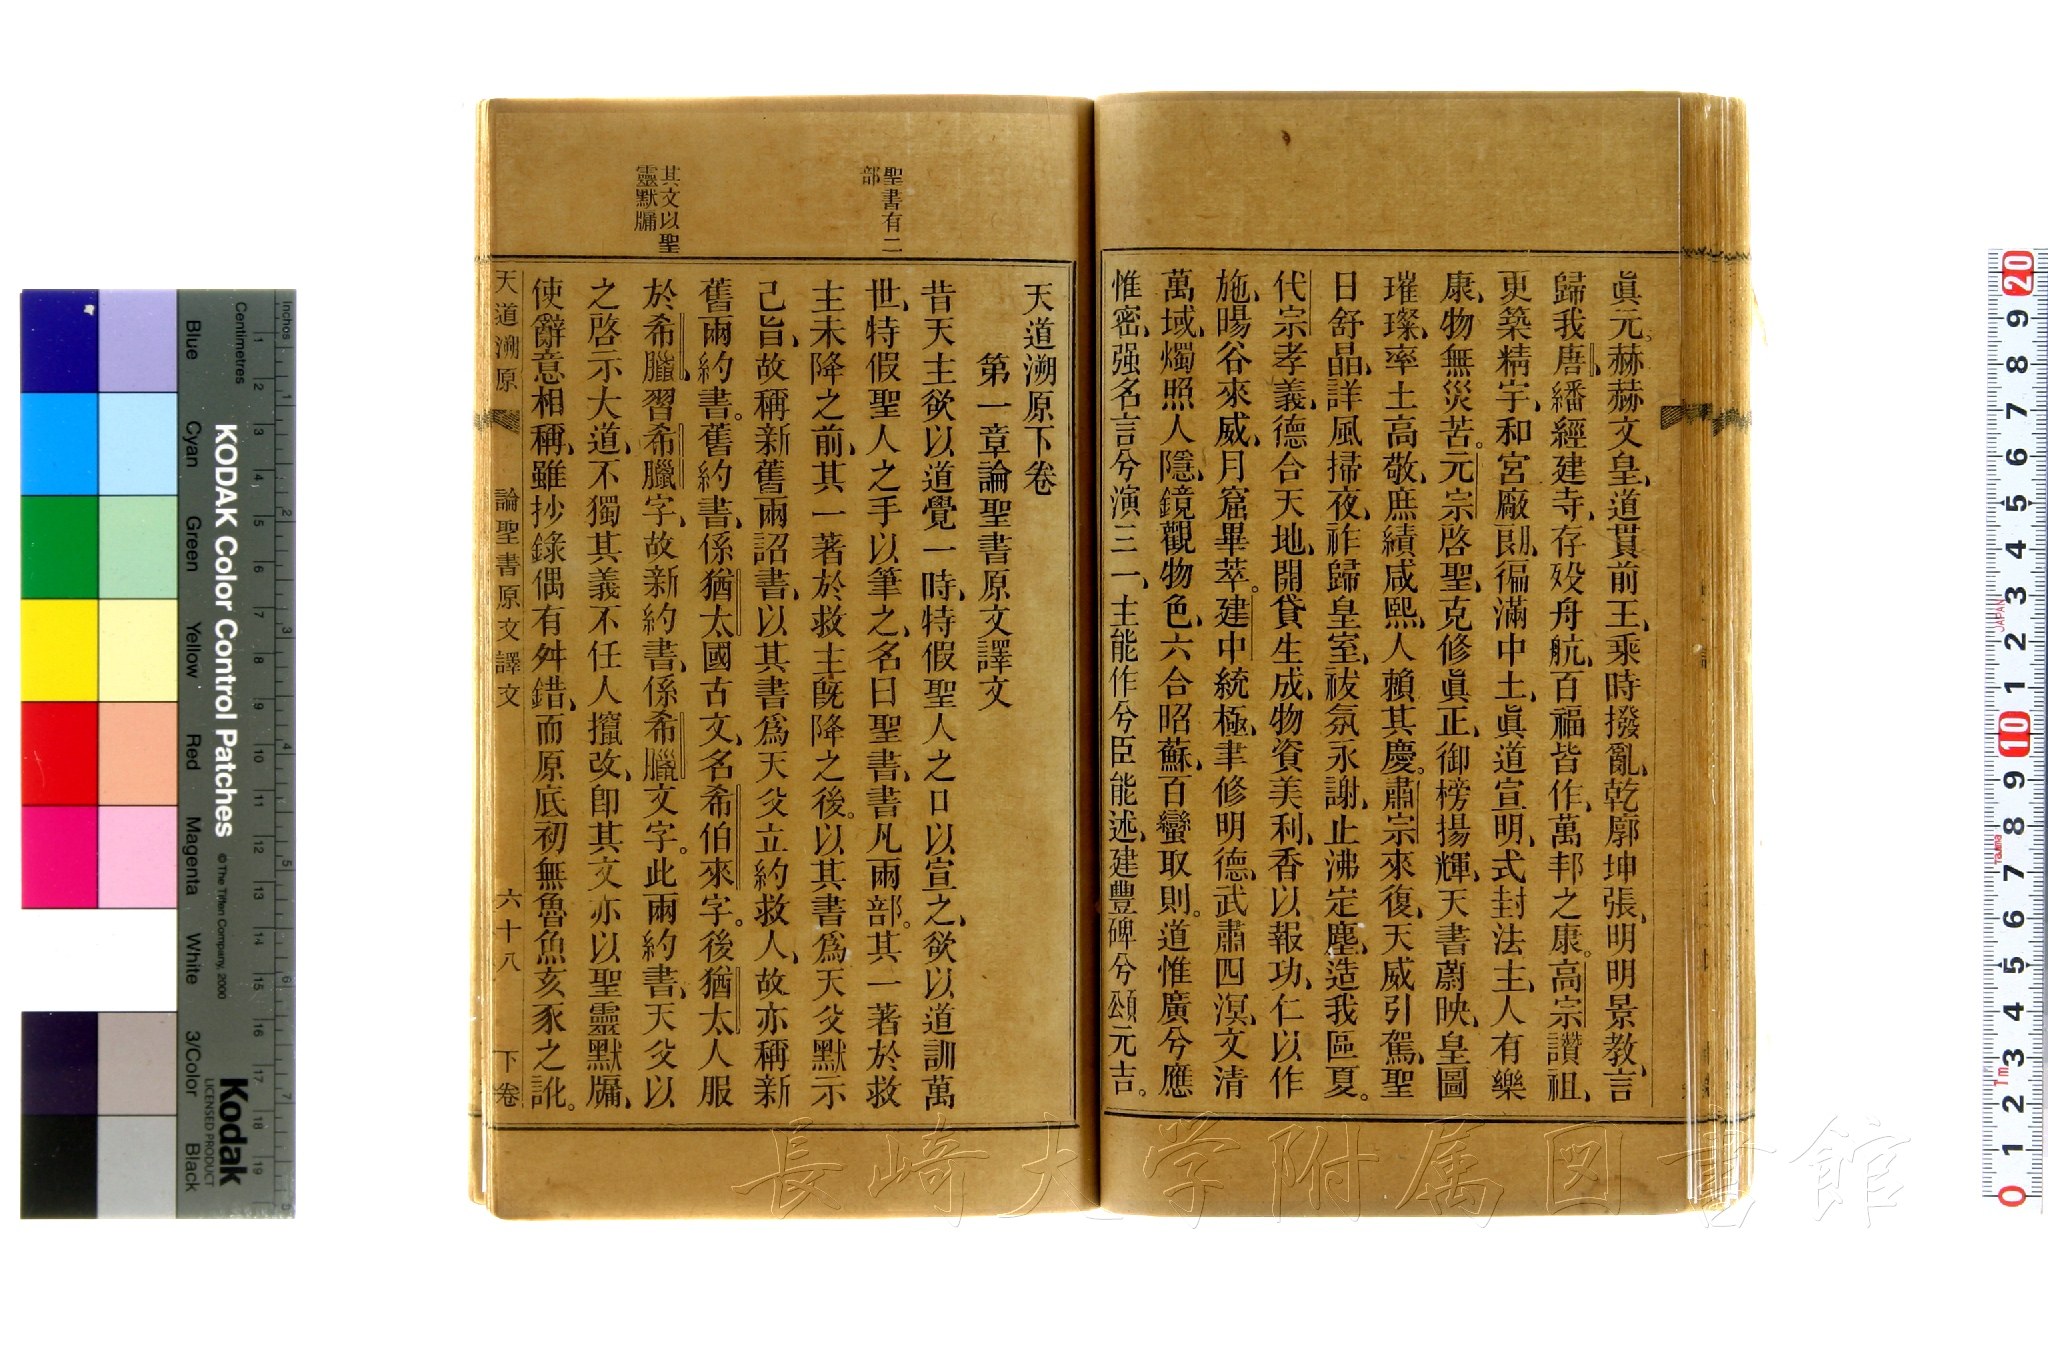 眞元。赫赫文皇、道貫前王、乘時撥亂、乾廓坤張、明明景教、言
歸我唐、繙經建寺、存歿舟航、百福皆作、萬邦之康。高宗讚祖、
更築精宇、和宮敞朗、徧滿中土、眞道宣明、式封法主、人有樂
康、物無災苦。元宗啓聖、克修眞正、御榜揚輝、天書蔚映、皇圖
璀璨、率土高敬、庶績咸熙、人賴其慶。肅宗來復、天威引駕、聖
日舒晶、詳風掃夜、祚歸皇室、祓氛永謝、止沸定塵、造我區夏。
代宗孝義、德合天地、開貸生成、物資美利、香以報功、仁以作
施、暘谷來威、月窟畢萃。建中統極、聿修明德、武肅四溟、文清
萬域、燭照人隱、鏡觀物色、六合昭蘇、百蠻取則。道惟廣兮應
惟密、强名言兮演三一、主能作兮臣能述、建豐碑兮頌元吉。
聖書有二
部
其文以聖
靈默牖
天道溯原下卷
第一章論聖書原文譯文
昔天主欲以道覺一時、特假聖人之口以宣之、欲以道訓萬
世、特假聖人之手以筆之、名曰聖書、書凡兩部。其一著於救
主未降之前、其一著於救主旣降之後。以其書爲天父默示
己旨、故稱新舊兩詔書、以其書爲天父立約救人、故亦稱新
舊兩約書。舊約書、係猶太國古文、名希伯來字。後猶太人服
於希臘、習希臘字、故新約書、係希臘文字。此兩約書、天父以
之啓示大道、不獨其義不任人擅改、卽其文亦以聖靈默牖、
使辭意相稱、雖抄錄偶有舛錯、而原底初無魯魚亥豕之訛。
天道溯原 論聖書原文譯文 六十八 下卷
Inches
Centimetres
Blue Cyan Green Yellow Red Magenta White 3/Color Black
KODAK Color Control Patches
©The Tiffen Company, 2000
Kodak
LICENSED PRODUCT
1 2 3 4 5 6 7 8 9 10 11 12 13 14 15 16 17 18 19
1 2 3 4 5 6 7
20 9 8 7 6 5 4 3 2 1 10 9 8 7 6 5 4 3 2 1 0
JAPAN
長崎大学附属図書館